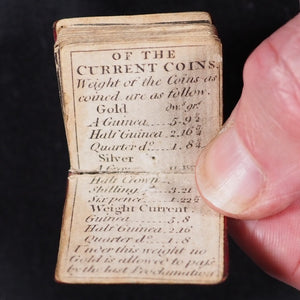 OF THE
CURRENT COINS.
Weight of the Coins as
coined are as follow.
Gold dwt gr
A Guinea 5 - 9½
Half Guinea 2.16¾
Quarter do 1.8
Silver
Half Crown
Shilling 3.21
Six pence 1.22½
Weight Current
Guinea 5.8
Half Guinea 2.16
Quarter do 1.8
Under this weight no
Gold is allowed to pass
by the last Proclamation